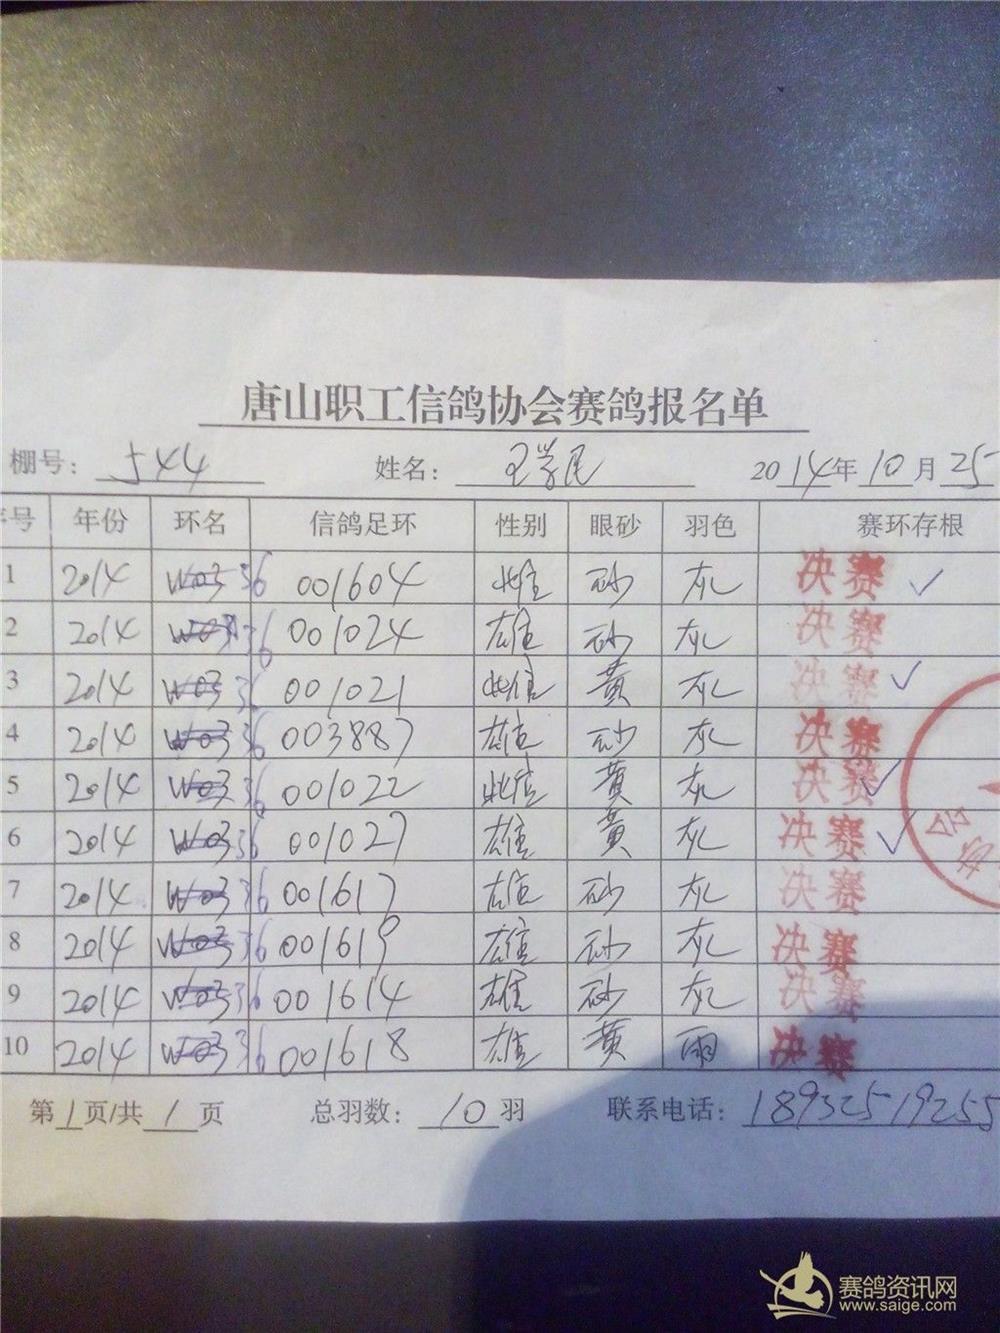 唐山职工信鸽协会赛鸽报名单
棚号: 544 姓名: 王学民 2014年10月25
序号 年份 环名 信鸽足环 性别 眼砂 羽色 赛环存根
1 2014 W03 36 001604 雌 砂 灰 决赛 ✓
2 2014 W03 36 001024 雄 砂 灰 决赛
3 2014 W03 36 001021 雌 黄 灰 决赛 ✓
4 2014 W03 36 003887 雄 砂 灰 决赛
5 2014 W03 36 001022 雌 黄 灰 决赛 ✓
6 2014 W03 36 001027 雄 黄 灰 决赛 ✓
7 2014 W03 36 001617 雄 砂 灰 决赛
8 2014 W03 36 001619 雄 砂 灰 决赛
9 2014 W03 36 001614 雄 砂 灰 决赛
10 2014 W03 36 001618 雄 黄 雨 决赛
第1页/共1页 总羽数: 10羽 联系电话: 18932519255
赛鸽资讯网
www.saige.com